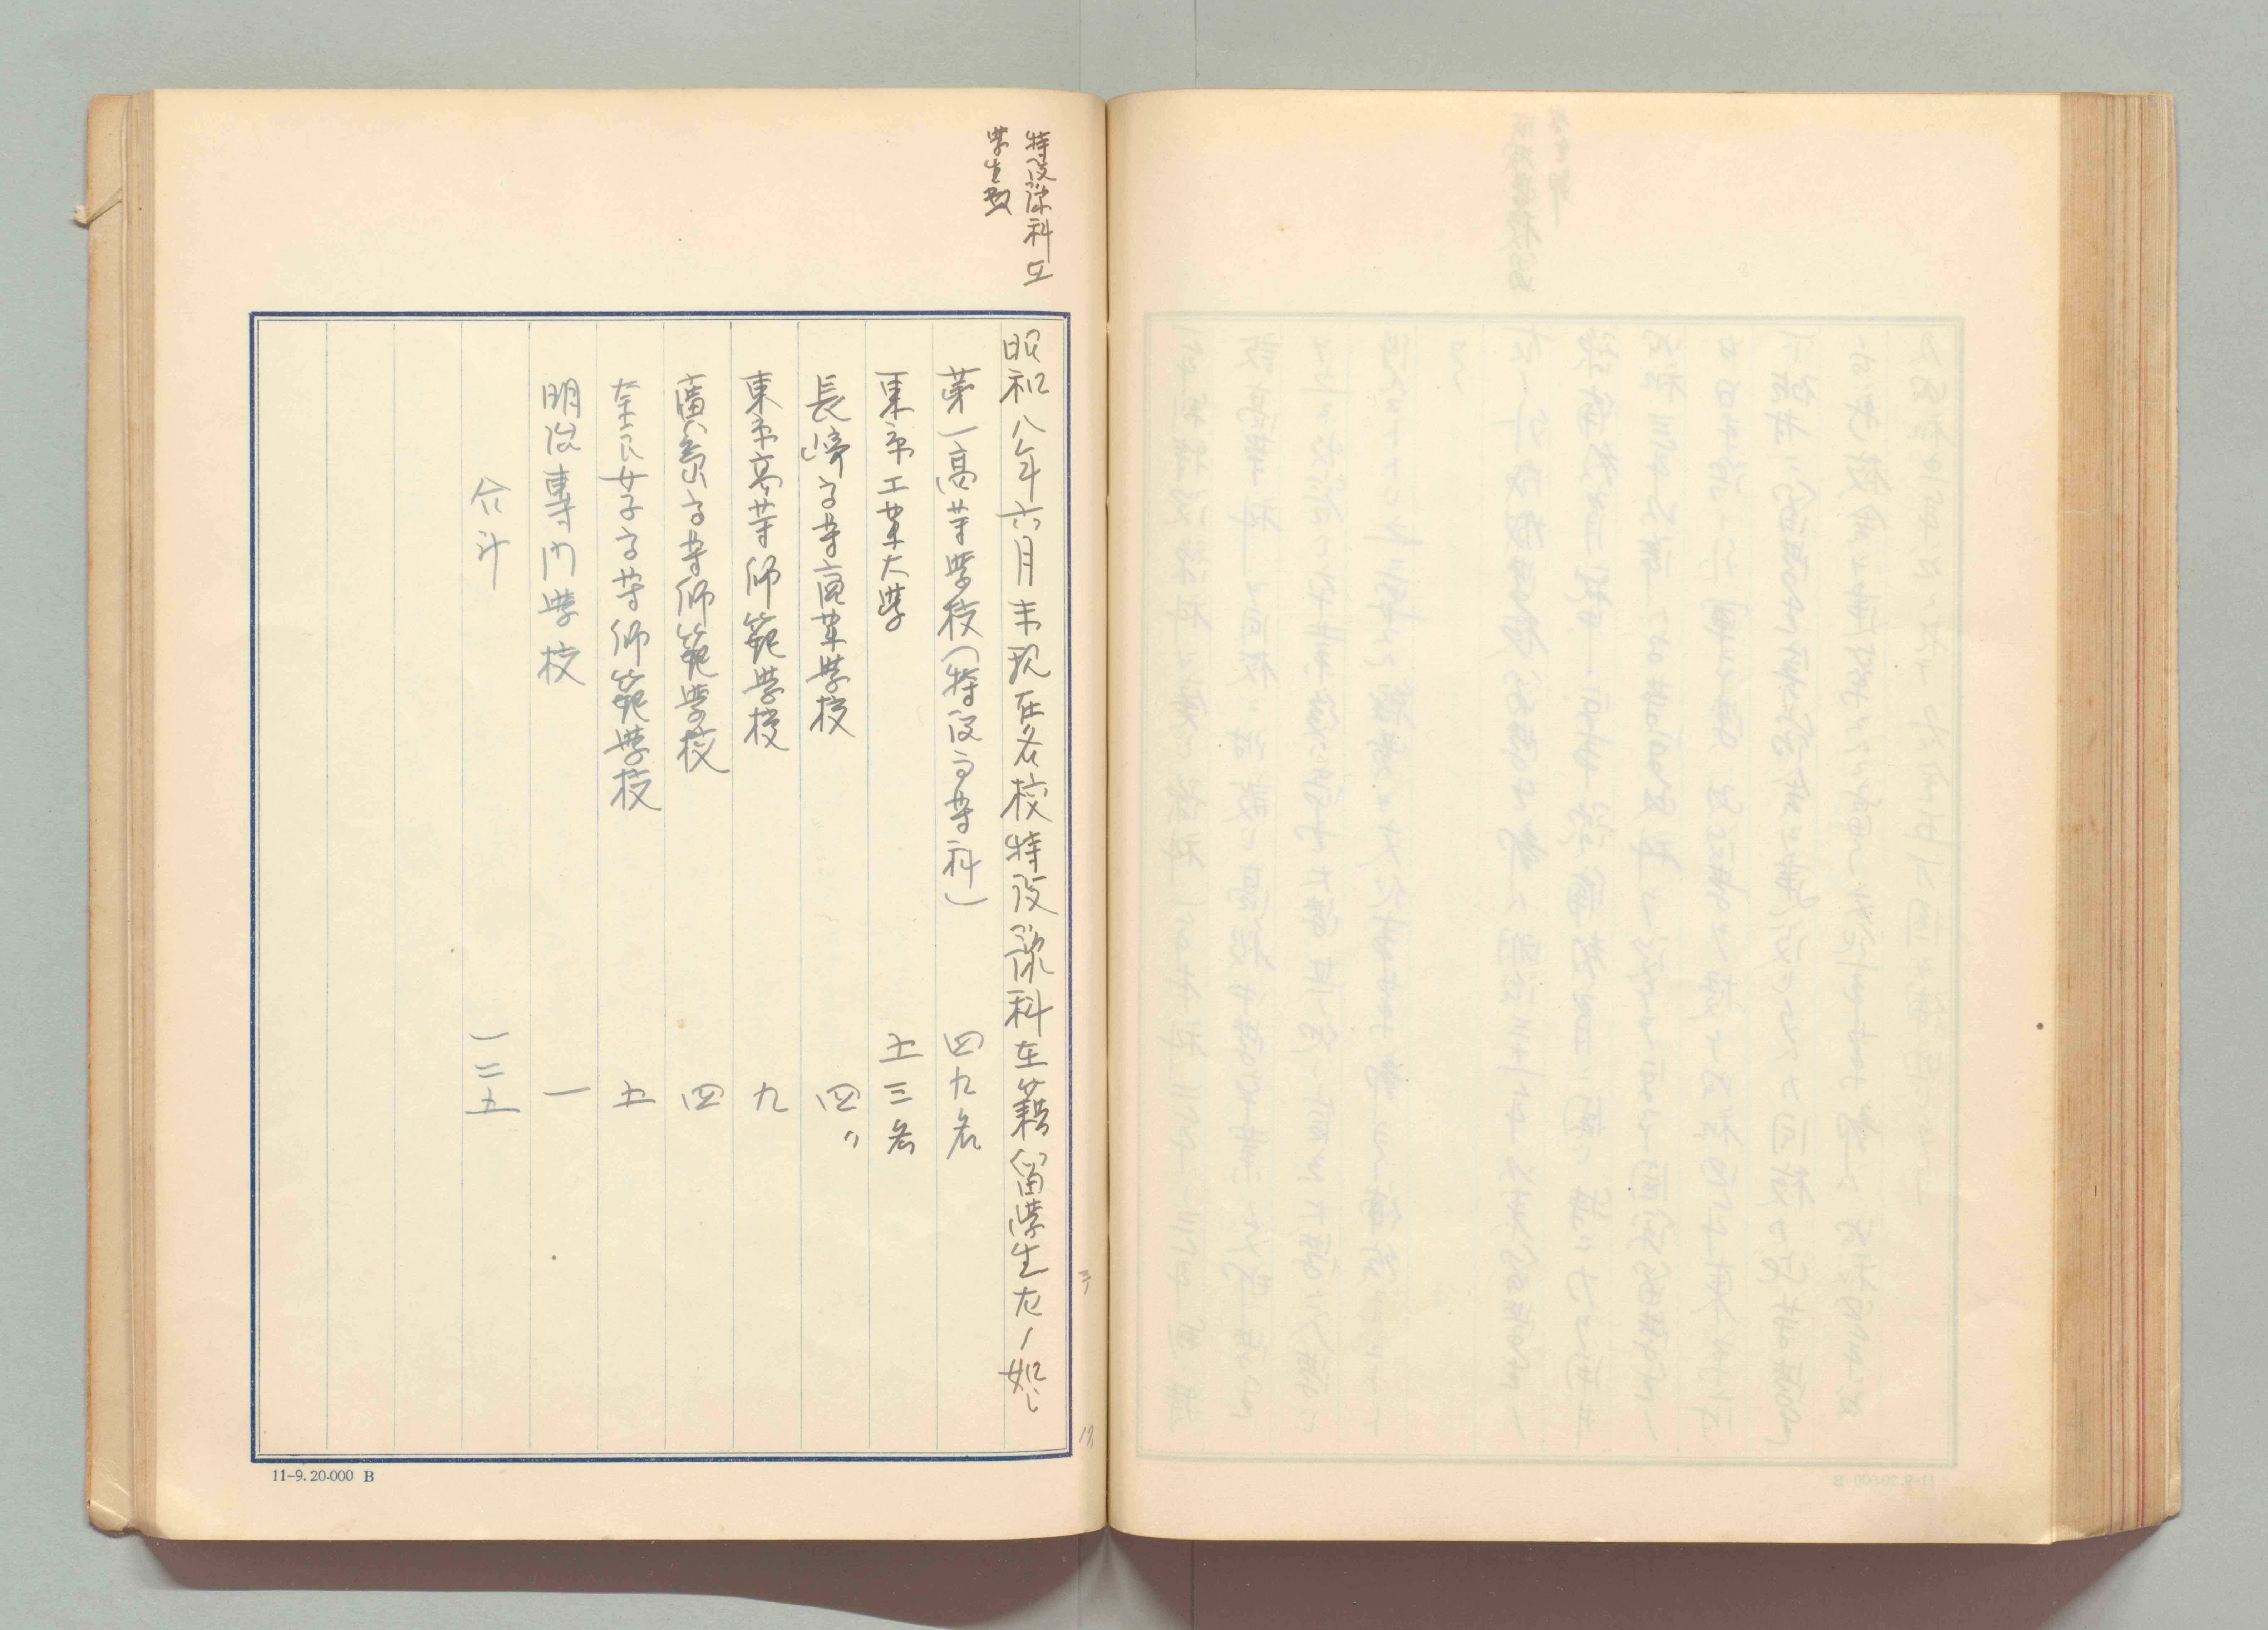 特設予科在
学生数
昭和八年六月末現在各校特設予科在籍留学生左ノ如シ
第一高等学校(特設高等科) 四九名
東京工業大学 五三名
長崎高等商業学校 四〃
東京高等師範学校 九
廣島高等師範学校 四
奈良女子高等師範学校 五
明治専門学校 一
合計 一二五
11-9.20.000 B